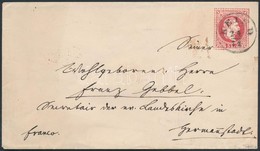 Seiner
Wohlgeboren Herrn
Franz Gebbel
Secretär der ev. Landeskirche in
Hermannstadt
franco